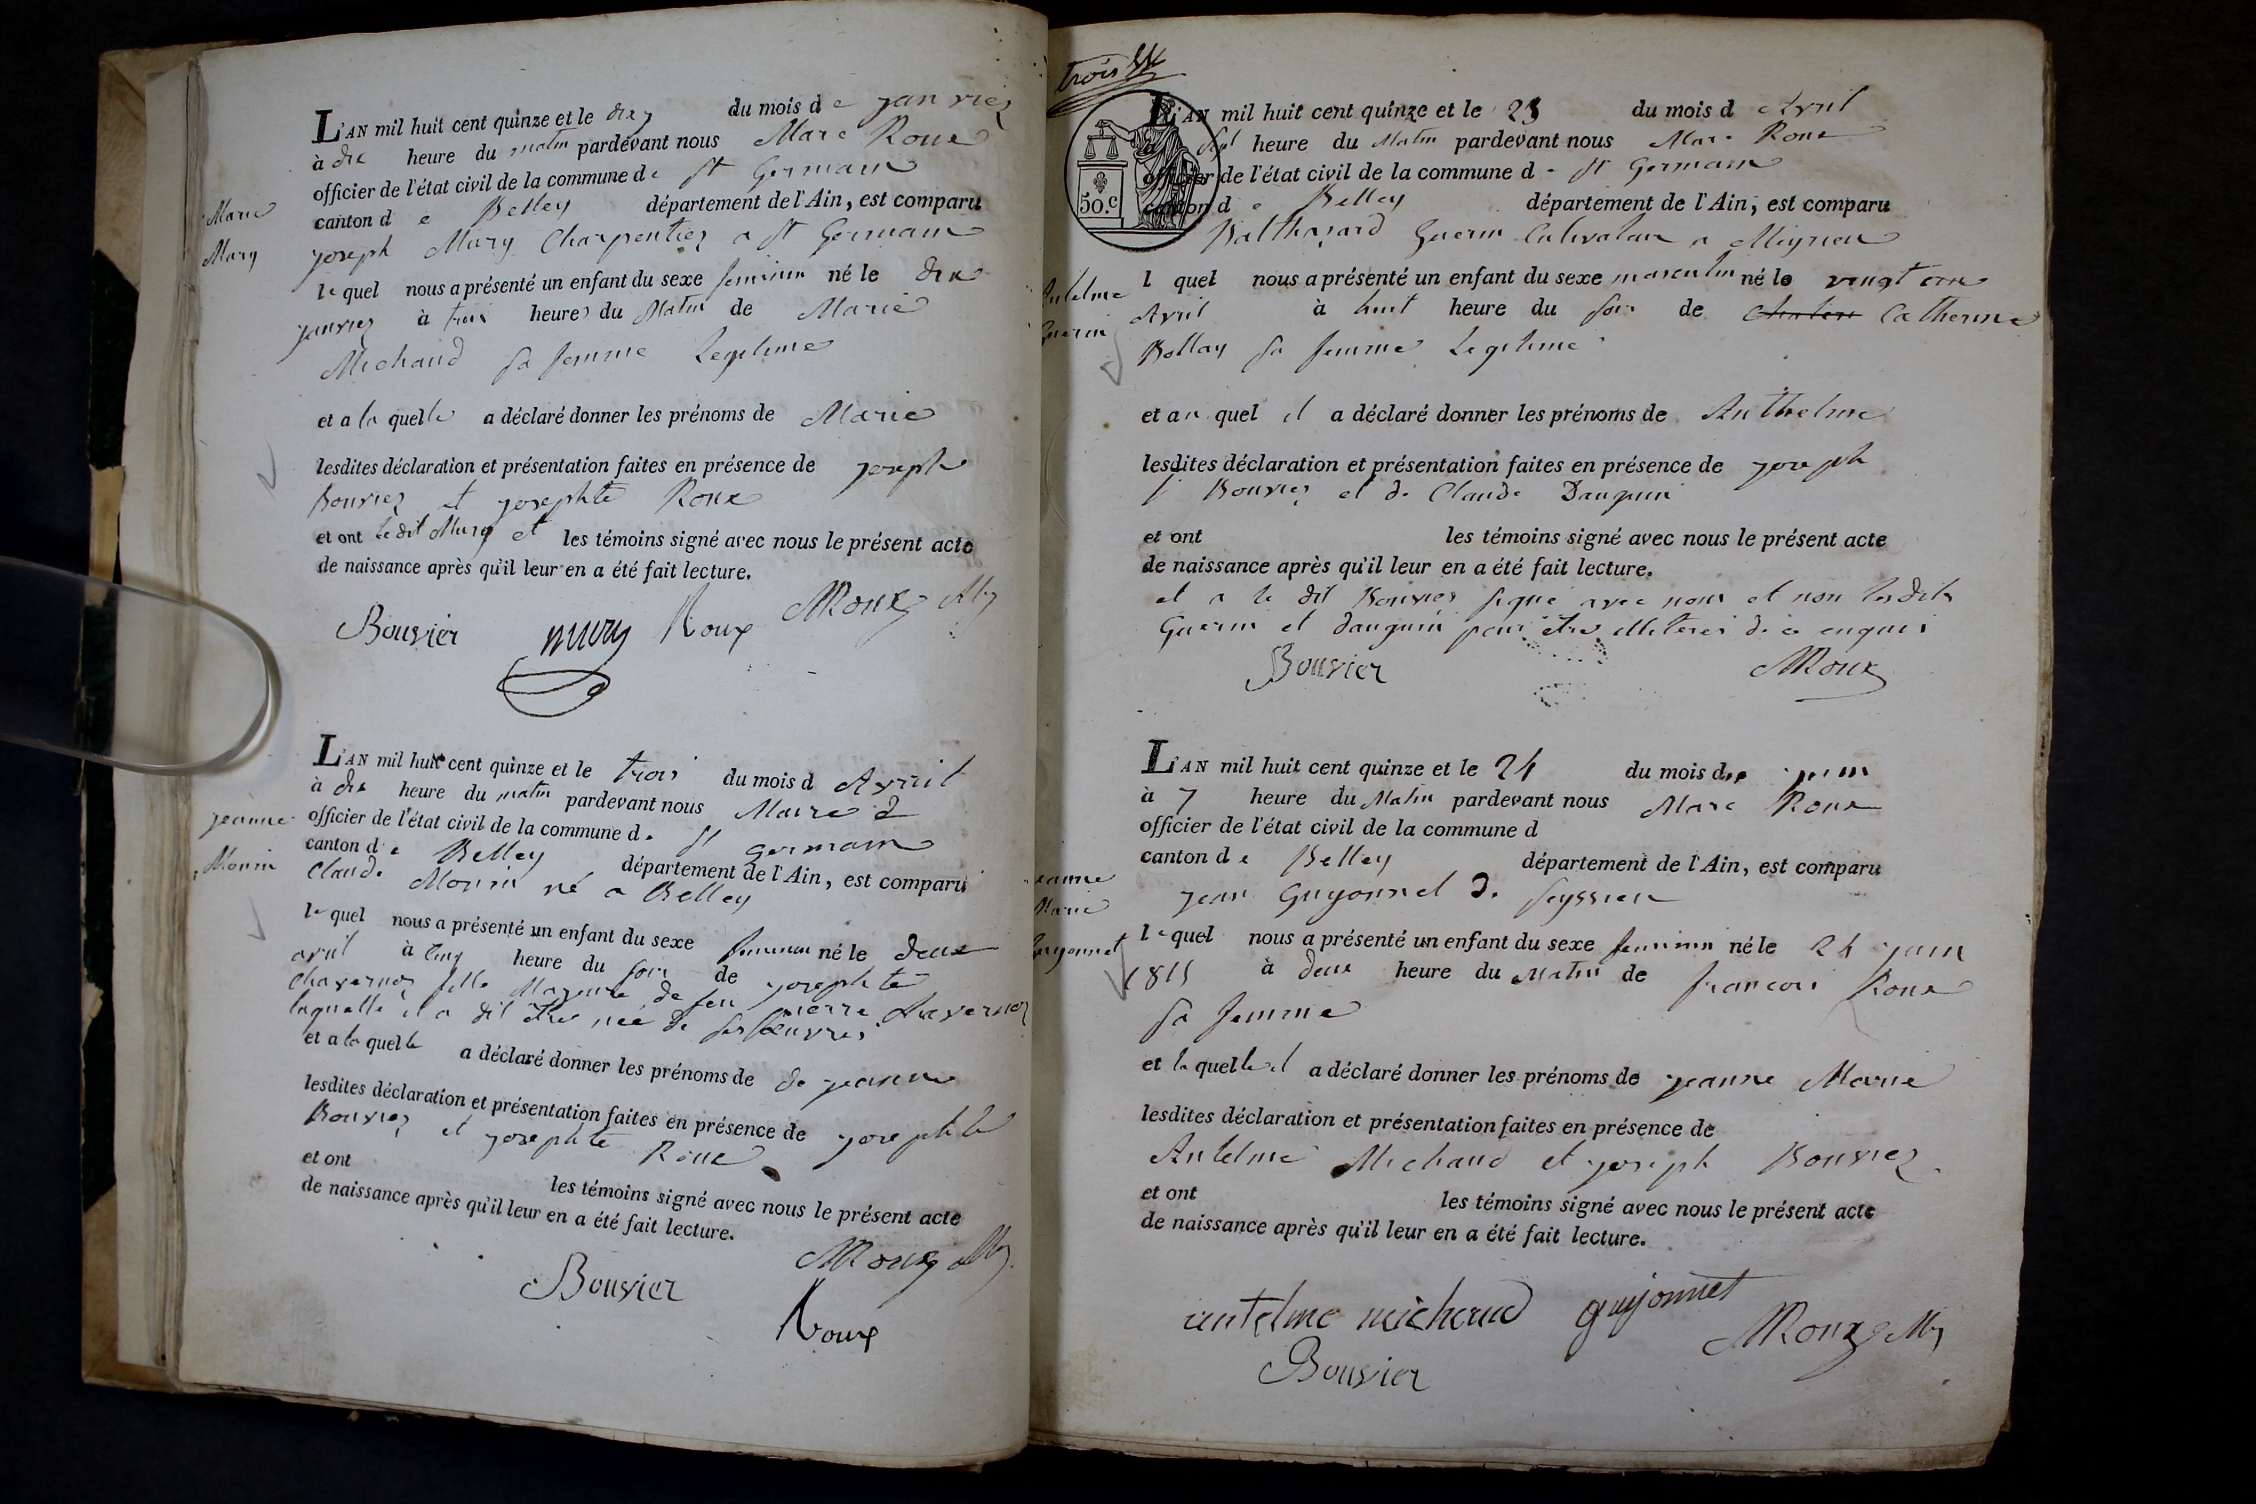 Marie
Mury
L'AN mil huit cent quinze et le dix du mois de janvier
à dix heure du matin pardevant nous Marc Roux
officier de l'état civil de la commune de St Germain
canton de Belley département de l'Ain, est comparu
joseph Mury Charpentier a St Germain
lequel nous a présenté un enfant du sexe feminin né le dix
janvier à trois heures du Matin de Marie
Michaud sa femme Legitime
et a laquelle a déclaré donner les prénoms de Marie
lesdites déclaration et présentation faites en présence de joseph
Bouvier et josephte Roux
et ont le dit Mury et les témoins signé avec nous le présent acte
de naissance après qu'il leur en a été fait lecture.
Bouvier mury Roux MRoux
jeanne
Monin
L'AN mil huit cent quinze et le trois du mois d Avril
à dix heure du matin pardevant nous Maire d
officier de l'état civil de la commune de St germain
canton de Belley département de l'Ain, est comparu
Claude Monin né a Belley
lequel nous a présenté un enfant du sexe feminin né le deux
avril à cinq heure du soir de josephte
chavernoz fille Majeure de feu pierre chavernoz
laquelle il a dit être née de ses œuvres
et a laquelle a déclaré donner les prénoms de de jeanne
lesdites déclaration et présentation faites en présence de joseph
Bouvier et josephte Roux
et ont les témoins signé avec nous le présent acte
de naissance après qu'il leur en a été fait lecture.
MRoux
Bouvier
Roux
trois
50.c
Antelme
Guerin
L'AN mil huit cent quinze et le 23 du mois d Avril
à sept heure du Matin pardevant nous Marc Roux
officier de l'état civil de la commune de St Germain
canton de Belley département de l'Ain, est comparu
Balthazard Guerin Cultivateur a Meyrieu
lequel nous a présenté un enfant du sexe masculin né le
Avril à huit heure du soir de Catherine
Bollay sa femme Legitime
et au quel il a déclaré donner les prénoms de Anthelme
lesdites déclaration et présentation faites en présence de joseph
Bouvier et de Claude Dauguin
et ont les témoins signé avec nous le présent acte
de naissance après qu'il leur en a été fait lecture.
et a le dit Bouvier signé avec nous et non lesdits
Guerin et dauguin pour être illiterés de ce enquis
Bouvier MRoux
jeanne
Marie
Guyonnet
L'AN mil huit cent quinze et le 24 du mois de juin
à 7 heure du Matin pardevant nous Marc Roux
officier de l'état civil de la commune d
canton de Belley département de l'Ain, est comparu
jean Guyonnet de Seyssieu
lequel nous a présenté un enfant du sexe feminin né le 24 juin
1815 à deux heure du Matin de francoise Roux
sa femme
et laquelle il a déclaré donner les prénoms de jeanne Marie
lesdites déclaration et présentation faites en présence de
Antelme Michaud et joseph Bouvier
et ont les témoins signé avec nous le présent acte
de naissance après qu'il leur en a été fait lecture.
antelme michaud guyonnet
MRoux
Bouvier